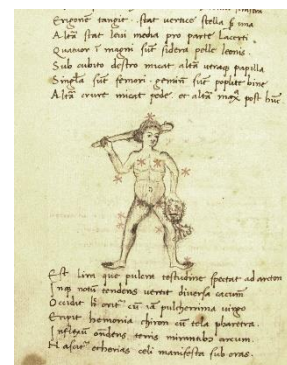 Erigone tangit . stat vertice stella s; una
Altā stat levi media pro parte lacerti .
Quatuor ī magni sūt sidera pelle leonis .
Sub cubito dextro micat altā utraq; papilla
Singl'a sūt femori . gemin' sūt poplite bine
Altā crure micat pede et altā maxª post huc
Est lira que pulcra testudine spectat ad arcton
Inq; notū tendens vertit diversa cacumī
Occidit orit' cū iā pulcherrima virgo
Eripit hemonia chiron cū tela pharetra .
Inflexū ondens terris minitabo arcum .
Nascit' etherias celi manifesta sub oras .